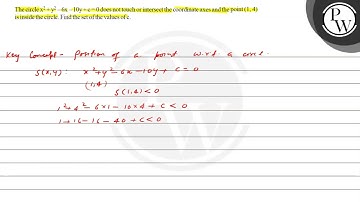 The circle x² + y² - 6x - 10y + c = 0 does not touch or intersect the coordinate axes and the point (1, 4)
is inside the circle. Find the set of the values of c.
Key Concept - Position of a point w.r.t a circle.
S(x,y): x² + y² - 6x - 10y + c = 0
(1,4)
S(1,4) < 0
1² + 4² - 6×1 - 10×4 + c < 0
1 + 16 - 16 - 40 + c < 0